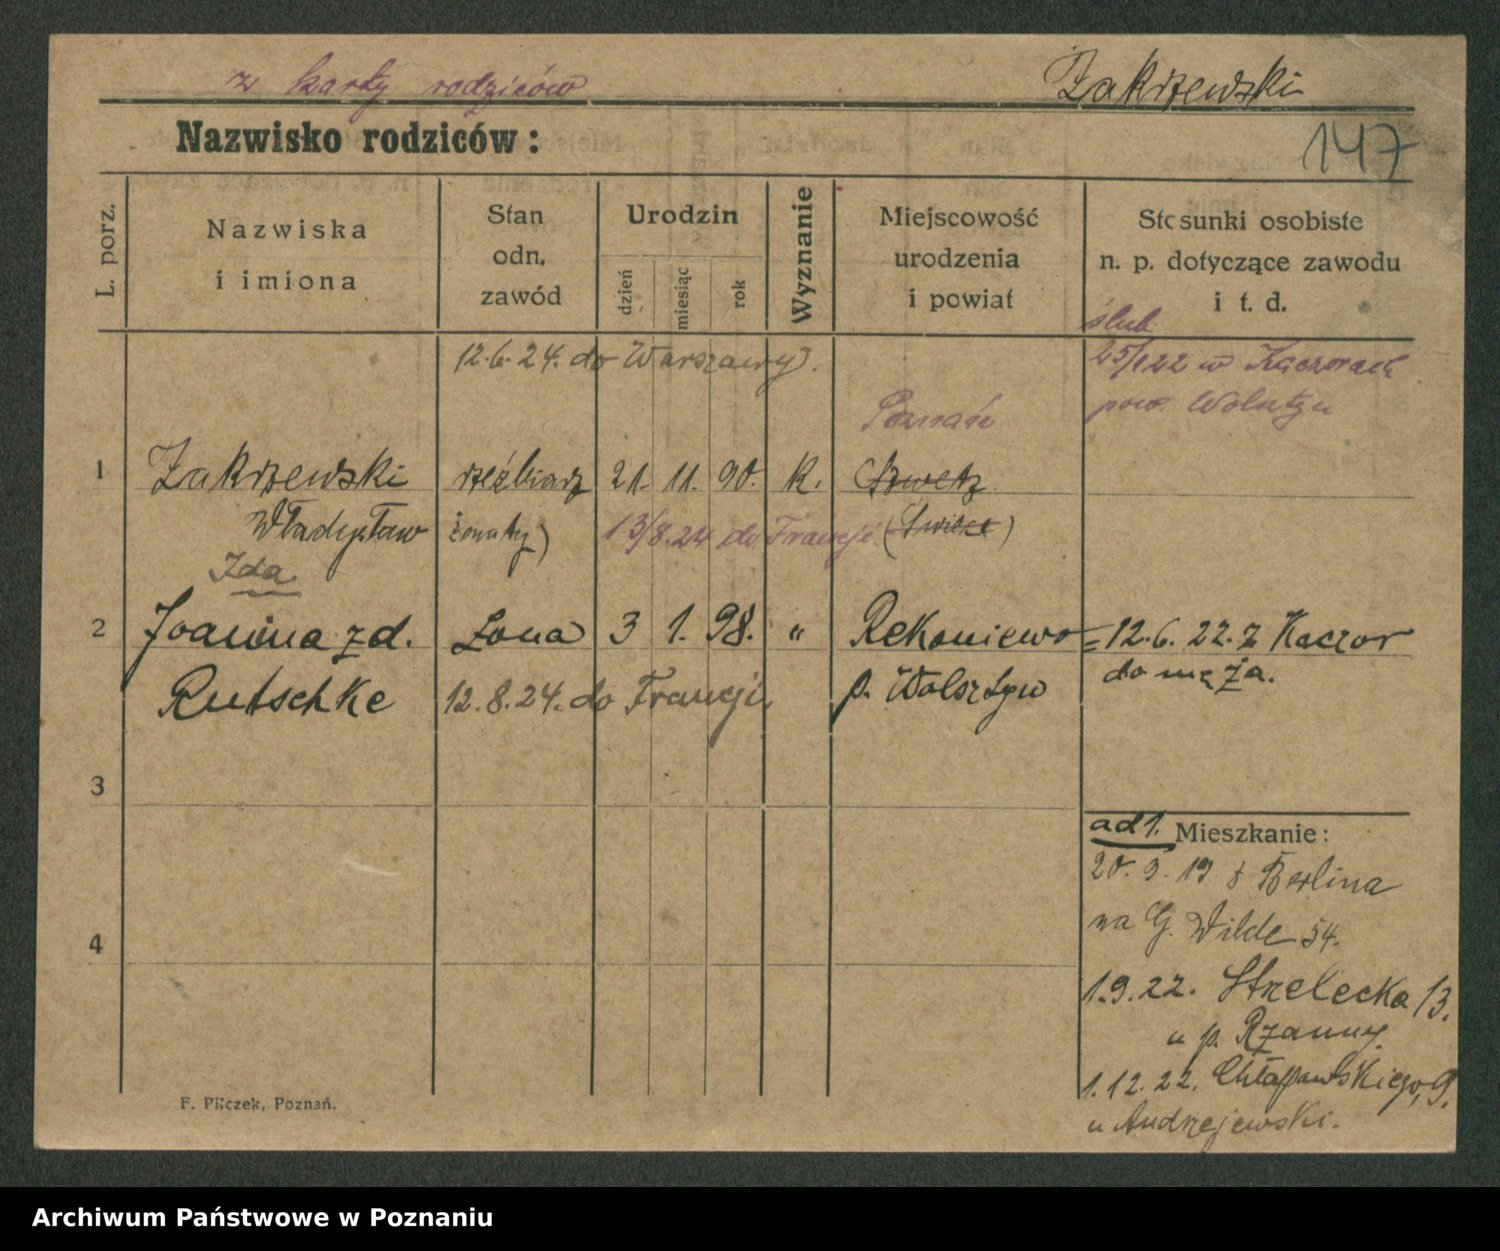 z karty rodziców
Zakrzewski
147
Nazwisko rodziców:
L. porz.
Nazwiska
i imiona
Stan
odn.
zawód
Urodzin
dzień
miesiąc
rok
Wyznanie
Miejscowość
urodzenia
i powiat
Stosunki osobiste
n. p. dotyczące zawodu
i t. d.
ślub
25/1 22 w Kaczorach
pow. Wolsztyn
12.6.24. do Warszawy).
Poznań
1 Zakrzewski rzeźbiarz 21. 11. 90. K. Szwetz
Władysław żonaty) 13/8.24 do Francji (Świece)
Ida
2 Joanina zd. żona 3 1. 98. " Rekoniewo = 12.6.22. z Kaczor
do męża.
Rutschke 12.8.24. do Francji. p. Wolsztyn
3
4
ad 1. Mieszkanie:
20.3.19 z Berlina
na G. Wilde 54.
1.9.22. Strzelecka 13.
u p. Rzanny.
1.12.22. Chłapowskiego, 9.
u Andrzejewski.
F. Pilczek, Poznań.
Archiwum Państwowe w Poznaniu